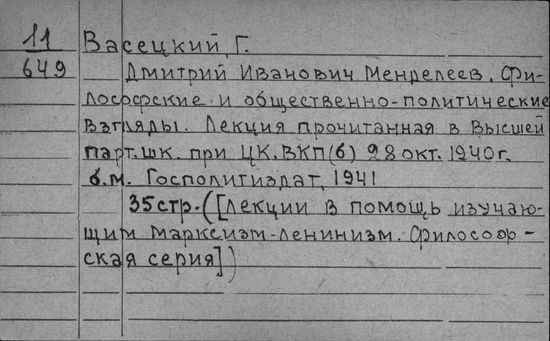 11 Васецкий, Г.
649 Дмитрий Иванович Менделеев. Фи-
лософские и общественно-политические
взгляды. Лекция прочитанная в Высшей
парт.шк. при ЦК.ВКП(б) 28 окт. 1940г.
б.м. Госполитиздат, 1941
35стр. ([Лекции в помощь изучаю-
щим марксизм-ленинизм. Философ-
ская серия])